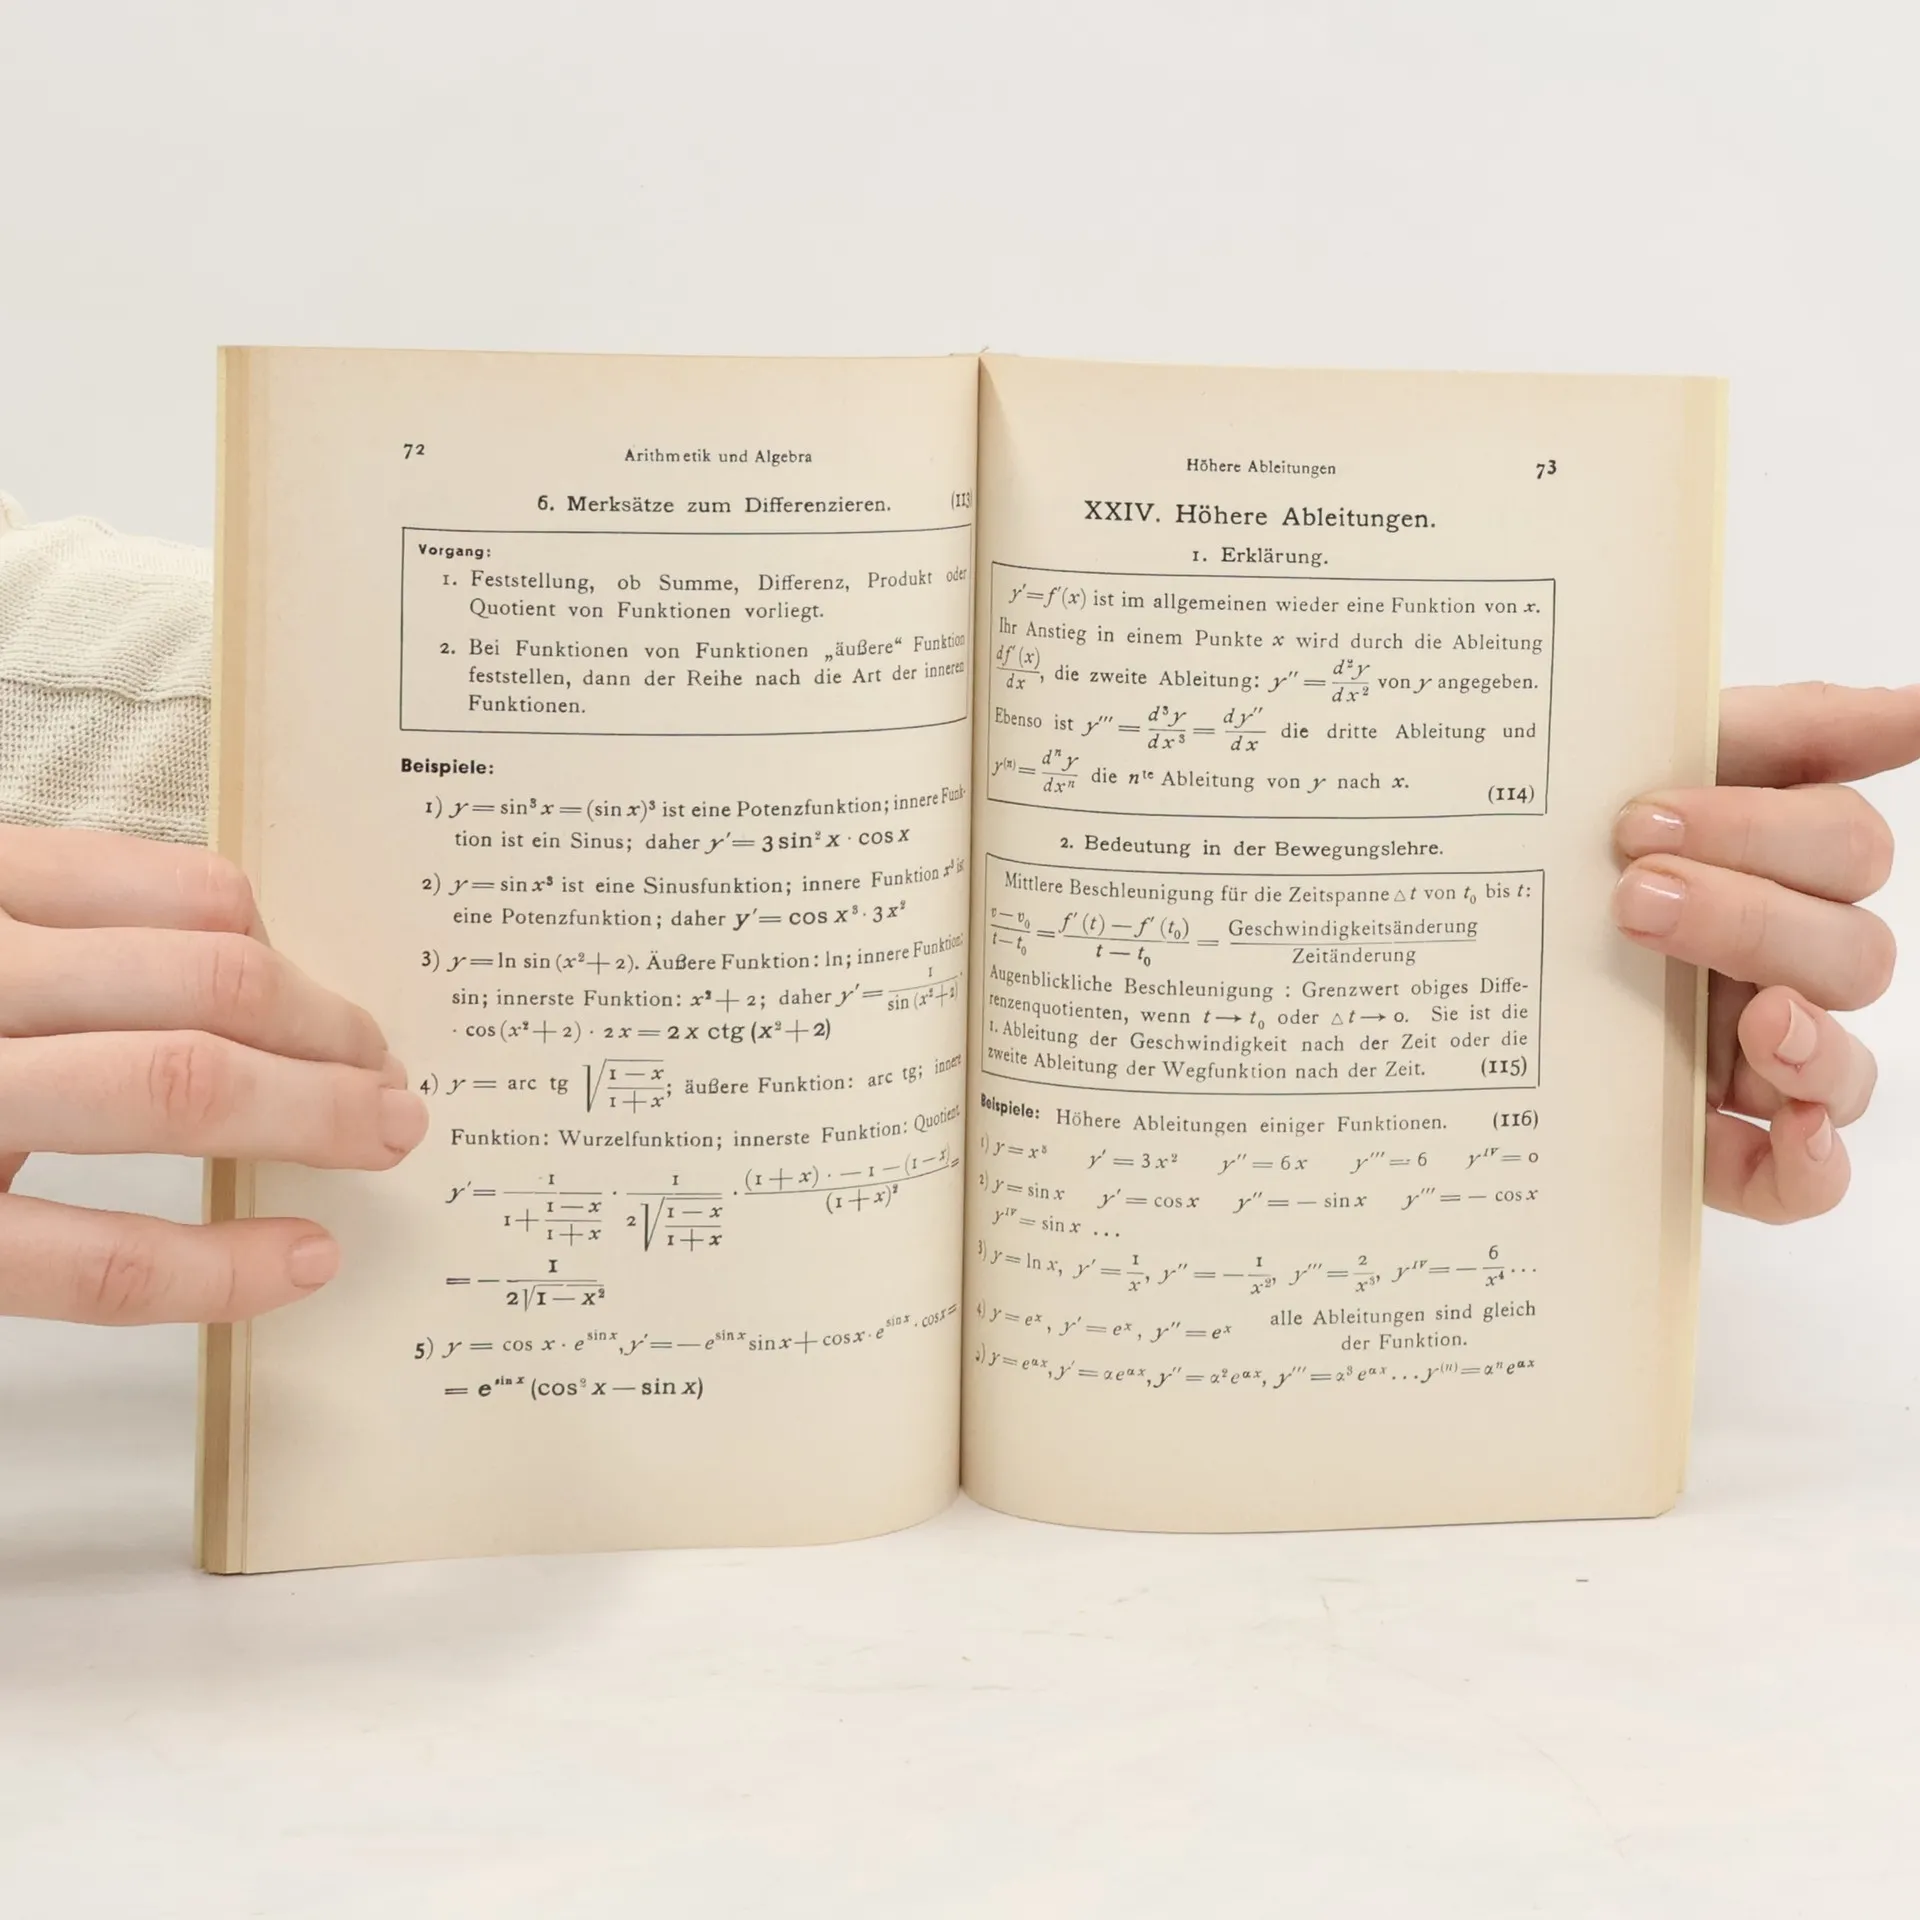 72
Arithmetik und Algebra
6. Merksätze zum Differenzieren. (113
Vorgang:
1. Feststellung, ob Summe, Differenz, Produkt oder
Quotient von Funktionen vorliegt.
2. Bei Funktionen von Funktionen „äußere“ Funktion
feststellen, dann der Reihe nach die Art der inneren
Funktionen.
Beispiele:
1) y = sin³ x = (sin x)³ ist eine Potenzfunktion; innere Funk-
tion ist ein Sinus; daher y′ = 3 sin² x · cos x
2) y = sin x³ ist eine Sinusfunktion; innere Funktion x³ ist
eine Potenzfunktion; daher y′ = cos x³ · 3 x²
3) y = ln sin (x² + 2). Äußere Funktion: ln; innere Funktion:
sin; innerste Funktion: x² + 2; daher y′ = 1 / sin (x² + 2) ·
· cos (x² + 2) · 2 x = 2 x ctg (x² + 2)
4) y = arc tg √((1 — x)/(1 + x)); äußere Funktion: arc tg; innere
Funktion: Wurzelfunktion; innerste Funktion: Quotient.
y′ = 1/(1 + (1 — x)/(1 + x)) · 1/(2 √((1 — x)/(1 + x))) · ((1 + x) · — 1 — (1 — x))/(1 + x)² =
= — 1/(2 √(1 — x²))
5) y = cos x · e^(sin x), y′ = — e^(sin x) sin x + cos x · e^(sin x) · cos x =
= e^(sin x) (cos² x — sin x)
Höhere Ableitungen
73
XXIV. Höhere Ableitungen.
1. Erklärung.
y′ = f′(x) ist im allgemeinen wieder eine Funktion von x.
Ihr Anstieg in einem Punkte x wird durch die Ableitung
df′(x)/dx, die zweite Ableitung: y″ = d²y/dx² von y angegeben.
Ebenso ist y‴ = d³y/dx³ = dy″/dx die dritte Ableitung und
y⁽ⁿ⁾ = dⁿy/dxⁿ die nᵗᵉ Ableitung von y nach x.
(114)
2. Bedeutung in der Bewegungslehre.
Mittlere Beschleunigung für die Zeitspanne △t von t₀ bis t:
(v — v₀)/(t — t₀) = (f′(t) — f′(t₀))/(t — t₀) = Geschwindigkeitsänderung/Zeitänderung
Augenblickliche Beschleunigung : Grenzwert obiges Diffe-
renzenquotienten, wenn t → t₀ oder △t → 0. Sie ist die
1. Ableitung der Geschwindigkeit nach der Zeit oder die
zweite Ableitung der Wegfunktion nach der Zeit. (115)
Beispiele: Höhere Ableitungen einiger Funktionen. (116)
1) y = x³ y′ = 3 x² y″ = 6 x y‴ = 6 yᴵⱽ = 0
2) y = sin x y′ = cos x y″ = — sin x y‴ = — cos x
yᴵⱽ = sin x ...
3) y = ln x, y′ = 1/x, y″ = — 1/x², y‴ = 2/x³, yᴵⱽ = — 6/x⁴ ...
4) y = eˣ, y′ = eˣ, y″ = eˣ alle Ableitungen sind gleich
der Funktion.
y = e^(αx), y′ = α e^(αx), y″ = α² e^(αx), y‴ = α³ e^(αx) ... y⁽ⁿ⁾ = αⁿ e^(αx)